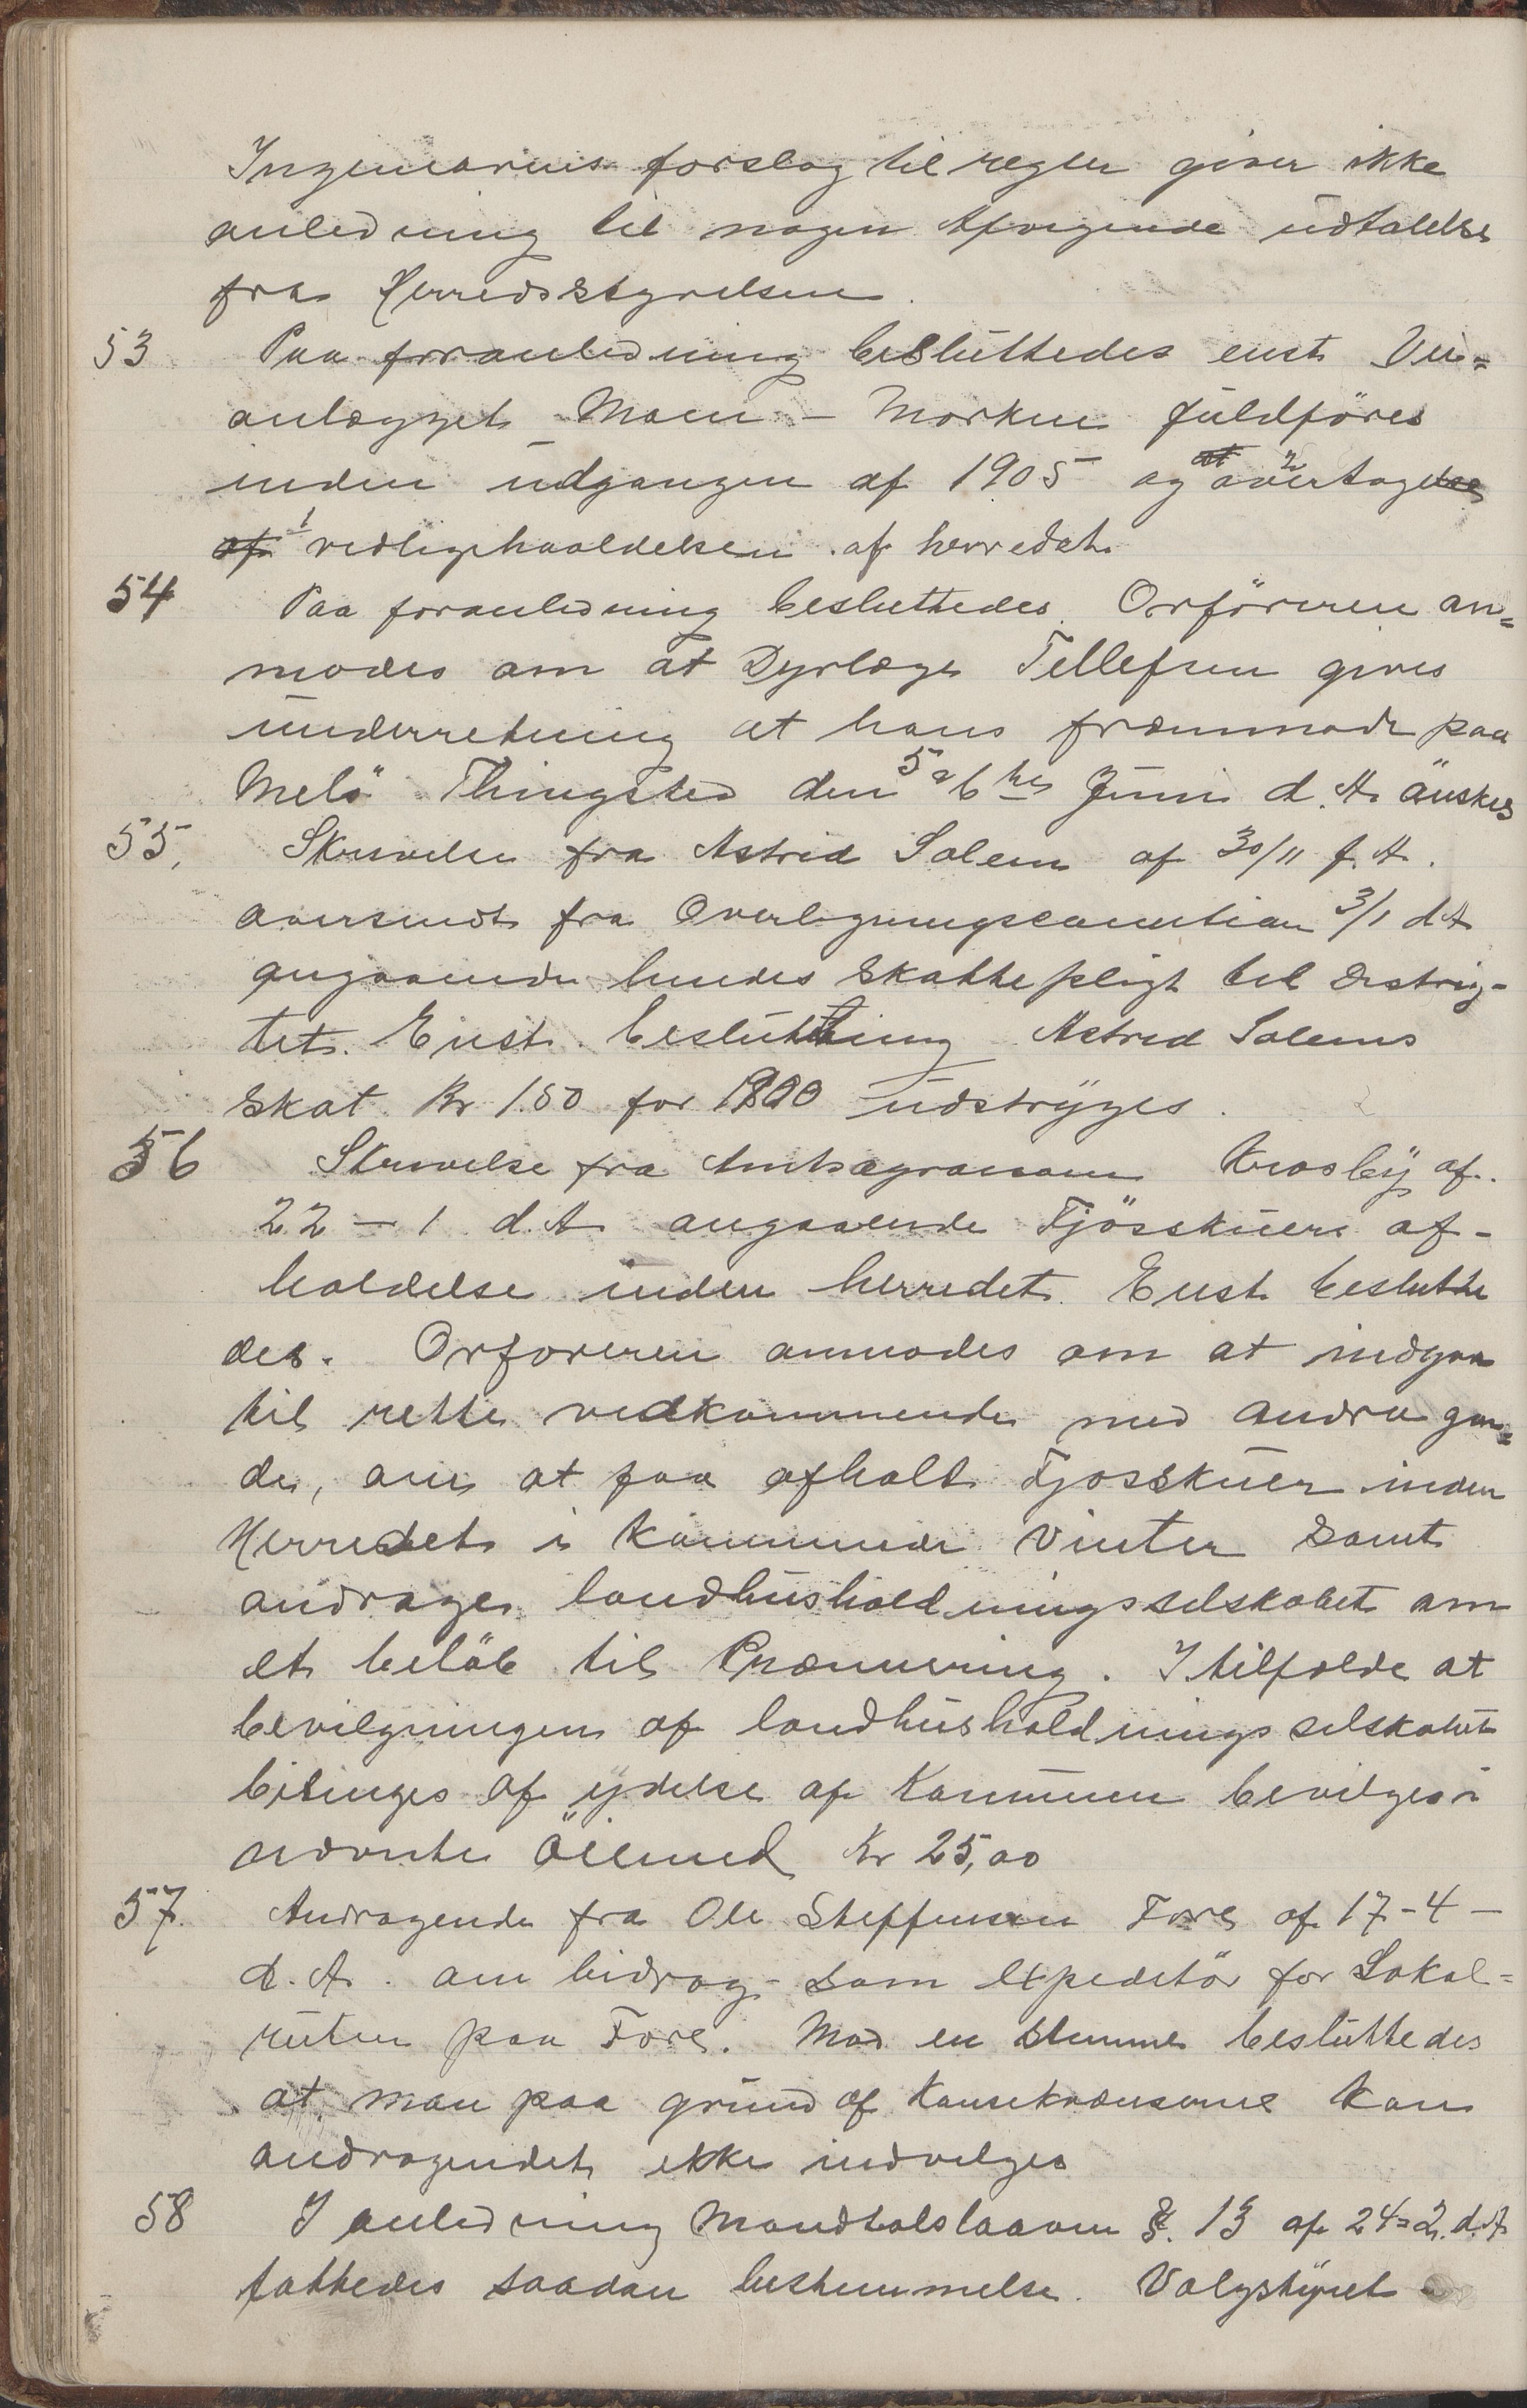 Ingeniørens forslag til regler giver ikke
anledning til nogen Afvigende udtalelse
fra Herredsstyrelsen.
53 Paa foranledning besluttedes enst Vei=
anlægget Moen – Morken fuldföres
inden udgangen af 1905 og at 2 overtagelse
af 1 vedligehaaldelsen af herredet.
54 Paa foranledning besluttedes. Orföreren an=
modes om at Dyrlæge Tellefsen gives
underretning at hans fremmøde paa
Melö Thingsted den 5 a 6 tes Juni d. A. önskes
55. Skrivelse fra Astrid Solem af 30/11 f. A.
oversendt fra Overligningscomution 3/1 d A
angaaende hendes skattepligt til distrig-
tet. Enst. beslutning Astrid Solems
skat Kr 1.50 for 1900 udstryges.
56 Skrivelse fra Amtsagronom Krosby af.
22 – 1 d. A angaaende Fjösskuers af-
holdelse inden herredet. Enst beslutte
des. Orforeren anmodes om at indgaa
til rette vedkommende med andragen=
de, om at faa afholdt Fjosskuer inden
Herredet i kommende Vinter samt
andrage landhusholdningsselskabet om
et belöb til Præmiering. I tilfælde at
bevilgningen af landhusholdningsselskabet
betinges af ydelse af Kommunen bevilges i
nævnte Öiemed Kr 25,00
57. Andragende fra Ole Steffensen Fore af 17-4 –
d. A. om bidrag som expeditör for Lokal=
ruten paa Fore. Mod en stemme besluttedes
at man paa grund af Konsekvenserne kan
andragendet ikke indvilges
58 I anledning Mandtalslaaven §. 13 af 24=2. d. A
fattedes saadan bestemmelse. Valgstyret